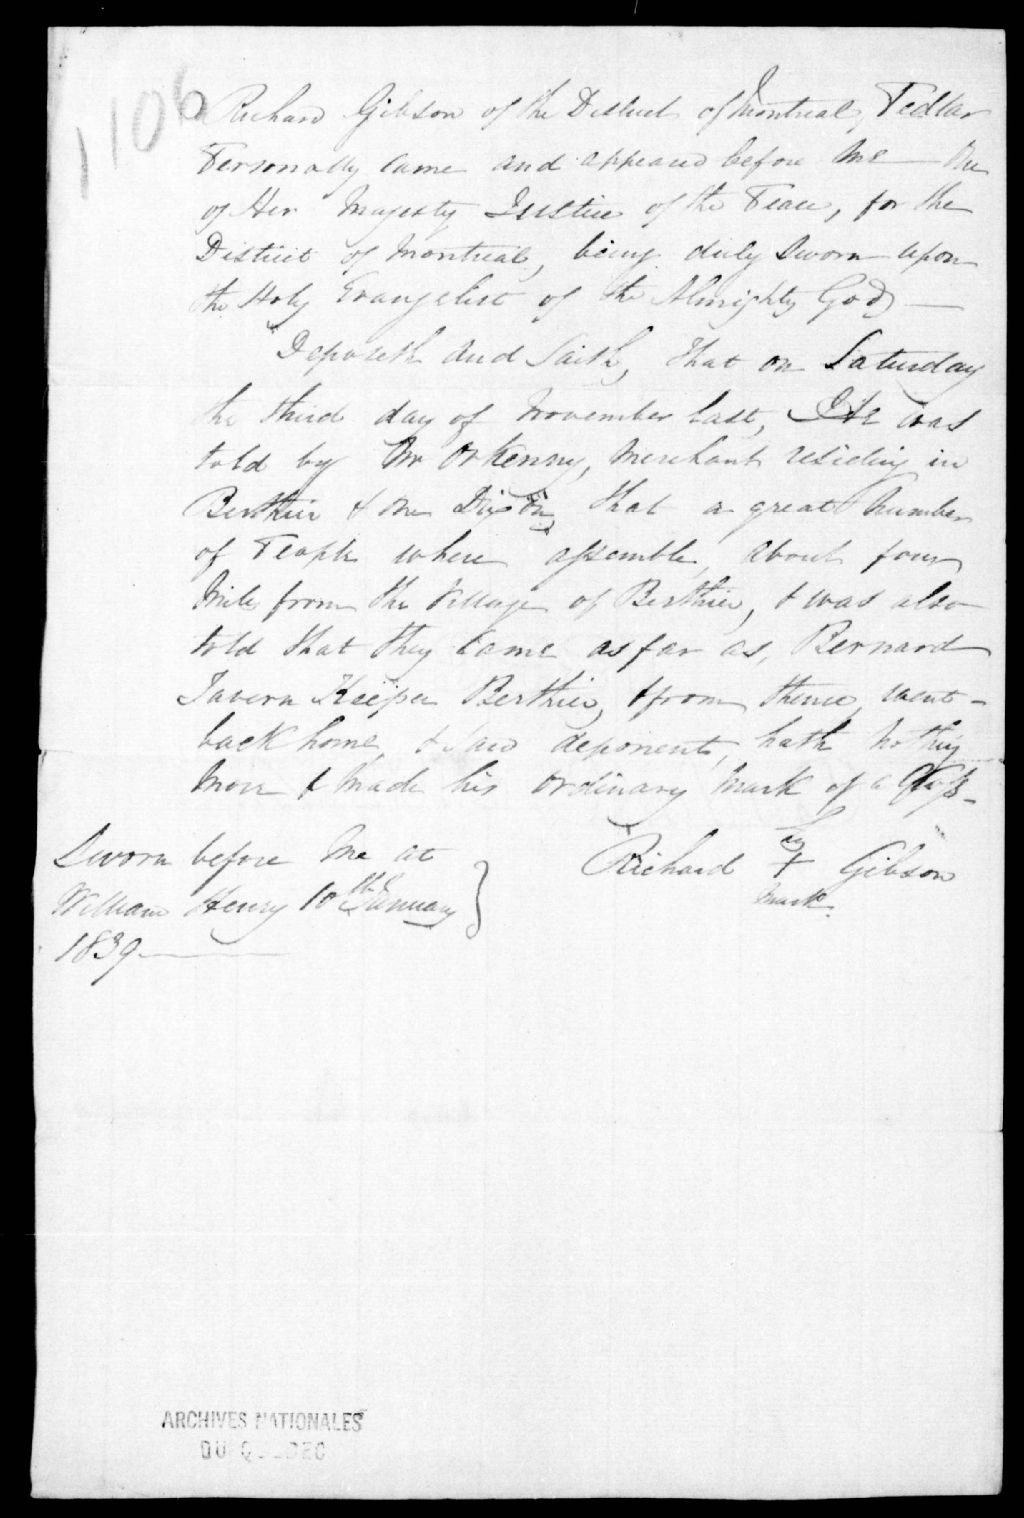 1106
Richard Gibson of the District of Montreal, Pedlar
Personally came and appeared before me One
of Her Majesty Justice of the Peace, for the
District of Montreal, being duly Sworn upon
the Holy Evangelist of the Almighty God
Deposeth and Saith, that on Saturday
the third day of November last, He was
told by Mr Orkenny, Merchant residing in
Berthier & Mr Dixon, that a great Number
of People where assemble, about four
Miles from the Village of Berthier, & was also
told that they came as far as, Bernard
Tavern Keeper Berthier, & from thence, went
back home, & Said deponent, hath nothing
More & Made his Ordinary Mark of a Cross
Sworn before Me at
William Henry 10th January
1839
Richard his + Gibson
Mark
ARCHIVES NATIONALES
DU QUEBEC